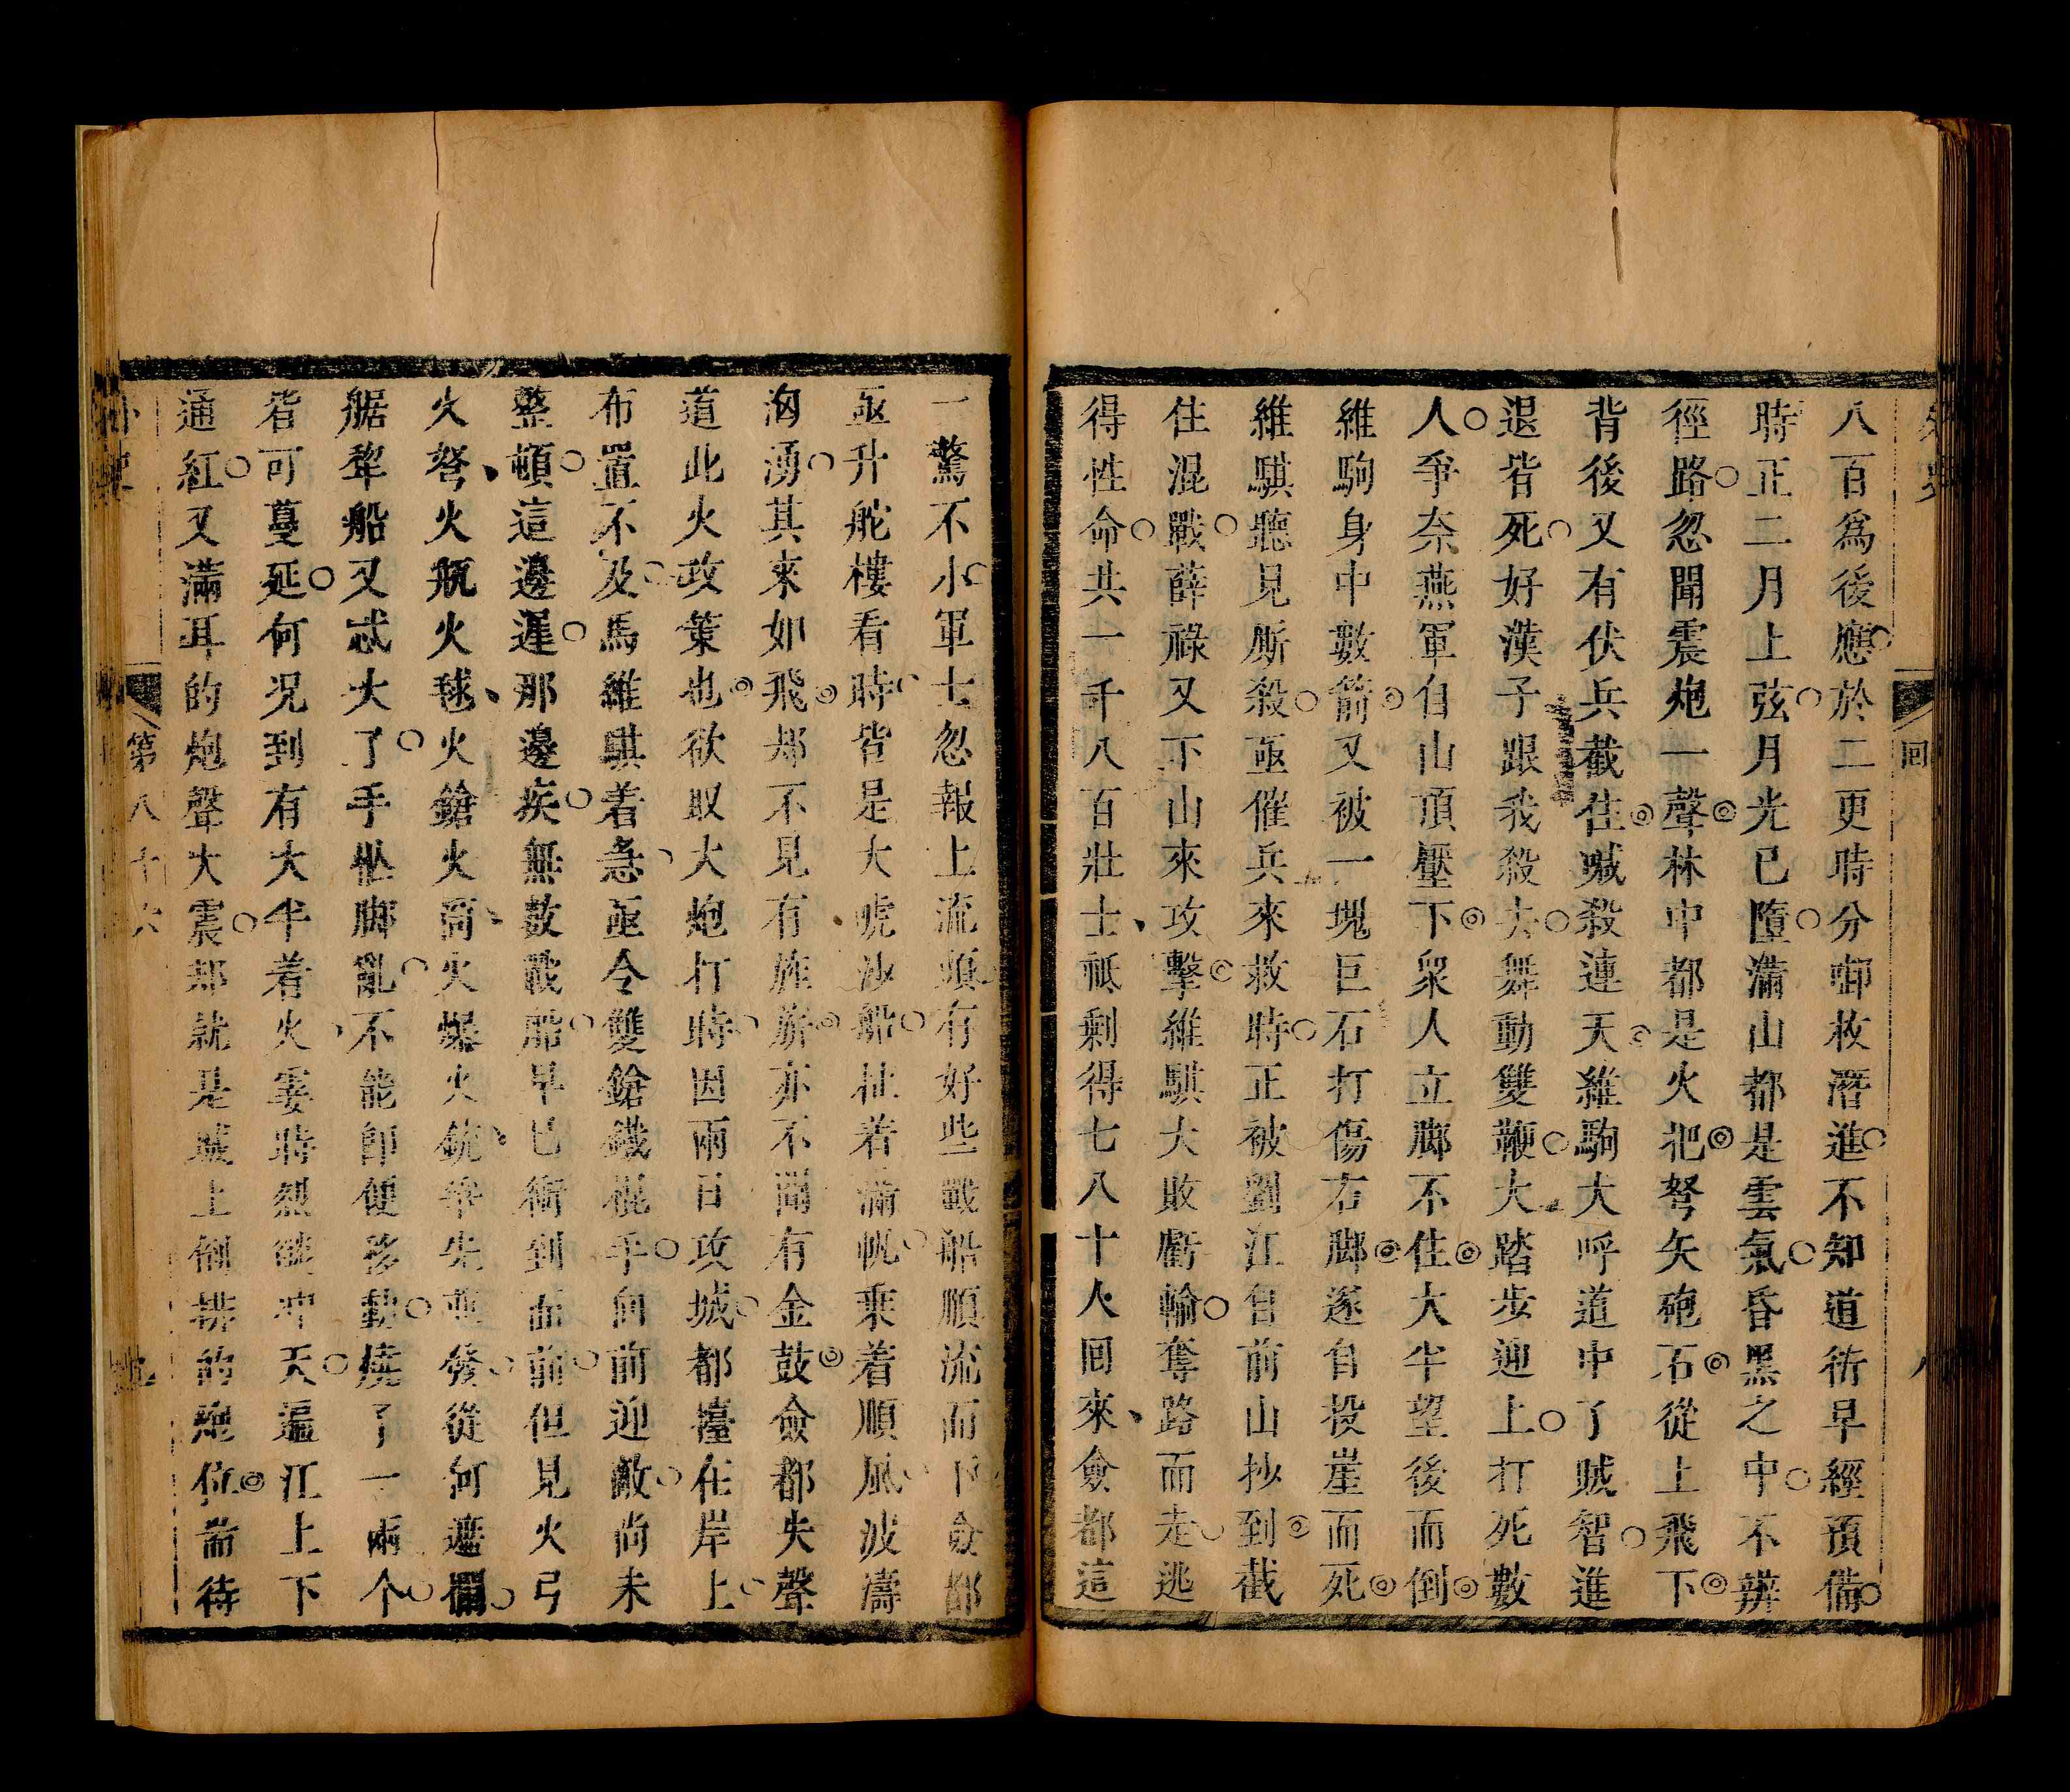 回
八
八百爲後應於二更時分啣枚潛進不知道衍早經預備
時正二月上弦月光已墮滿山都是雲氣昏黑之中不辨
徑路忽聞震炮一聲林中都是火把弩矢砲石從上飛下
背後又有伏兵截住喊殺連天維駒大呼道中了賊智進
退皆死好漢子跟我殺去舞動雙鞭大踏步迎上打死數
人爭奈燕軍自山頂壓下衆人立脚不住大半望後而倒
維駒身中數箭又被一塊巨石打傷右脚遂自投崖而死
維騏聽見厮殺亟催兵來救時正被劉江自前山抄到截
住混戰薛祿又下山來攻擊維騏大敗虧輸奪路而走逃
得性命共一千八百壯士祗剩得七八十人囘來僉都這
一驚不小軍士忽報上流頭有好些戰船順流而下僉都
亟升舵樓看時皆是大號沙船扯着滿帆乘着順風波濤
洶湧其來如飛却不見有旌旂亦不聞有金鼓僉都失聲
道此火攻策也欲取大炮打時因兩日攻城都擡在岸上
布置不及馬維騏着急亟令雙鎗鐵棍手向前迎敵尚未
整頓這邊遲那邊疾無數戰船早已衝到面前但見火弓
火弩火瓶火毬火鎗火筒火爆火銃爭先亟發從何遮攔
艍犂船又忒大了手忙脚亂不能卽便移動燒了一兩个
皆可蔓延何况到有大半着火霎時烈燄冲天遍江上下
通紅又滿耳的炮聲大震却就是城上倒排的炮位耑待
外史
第八十六
九